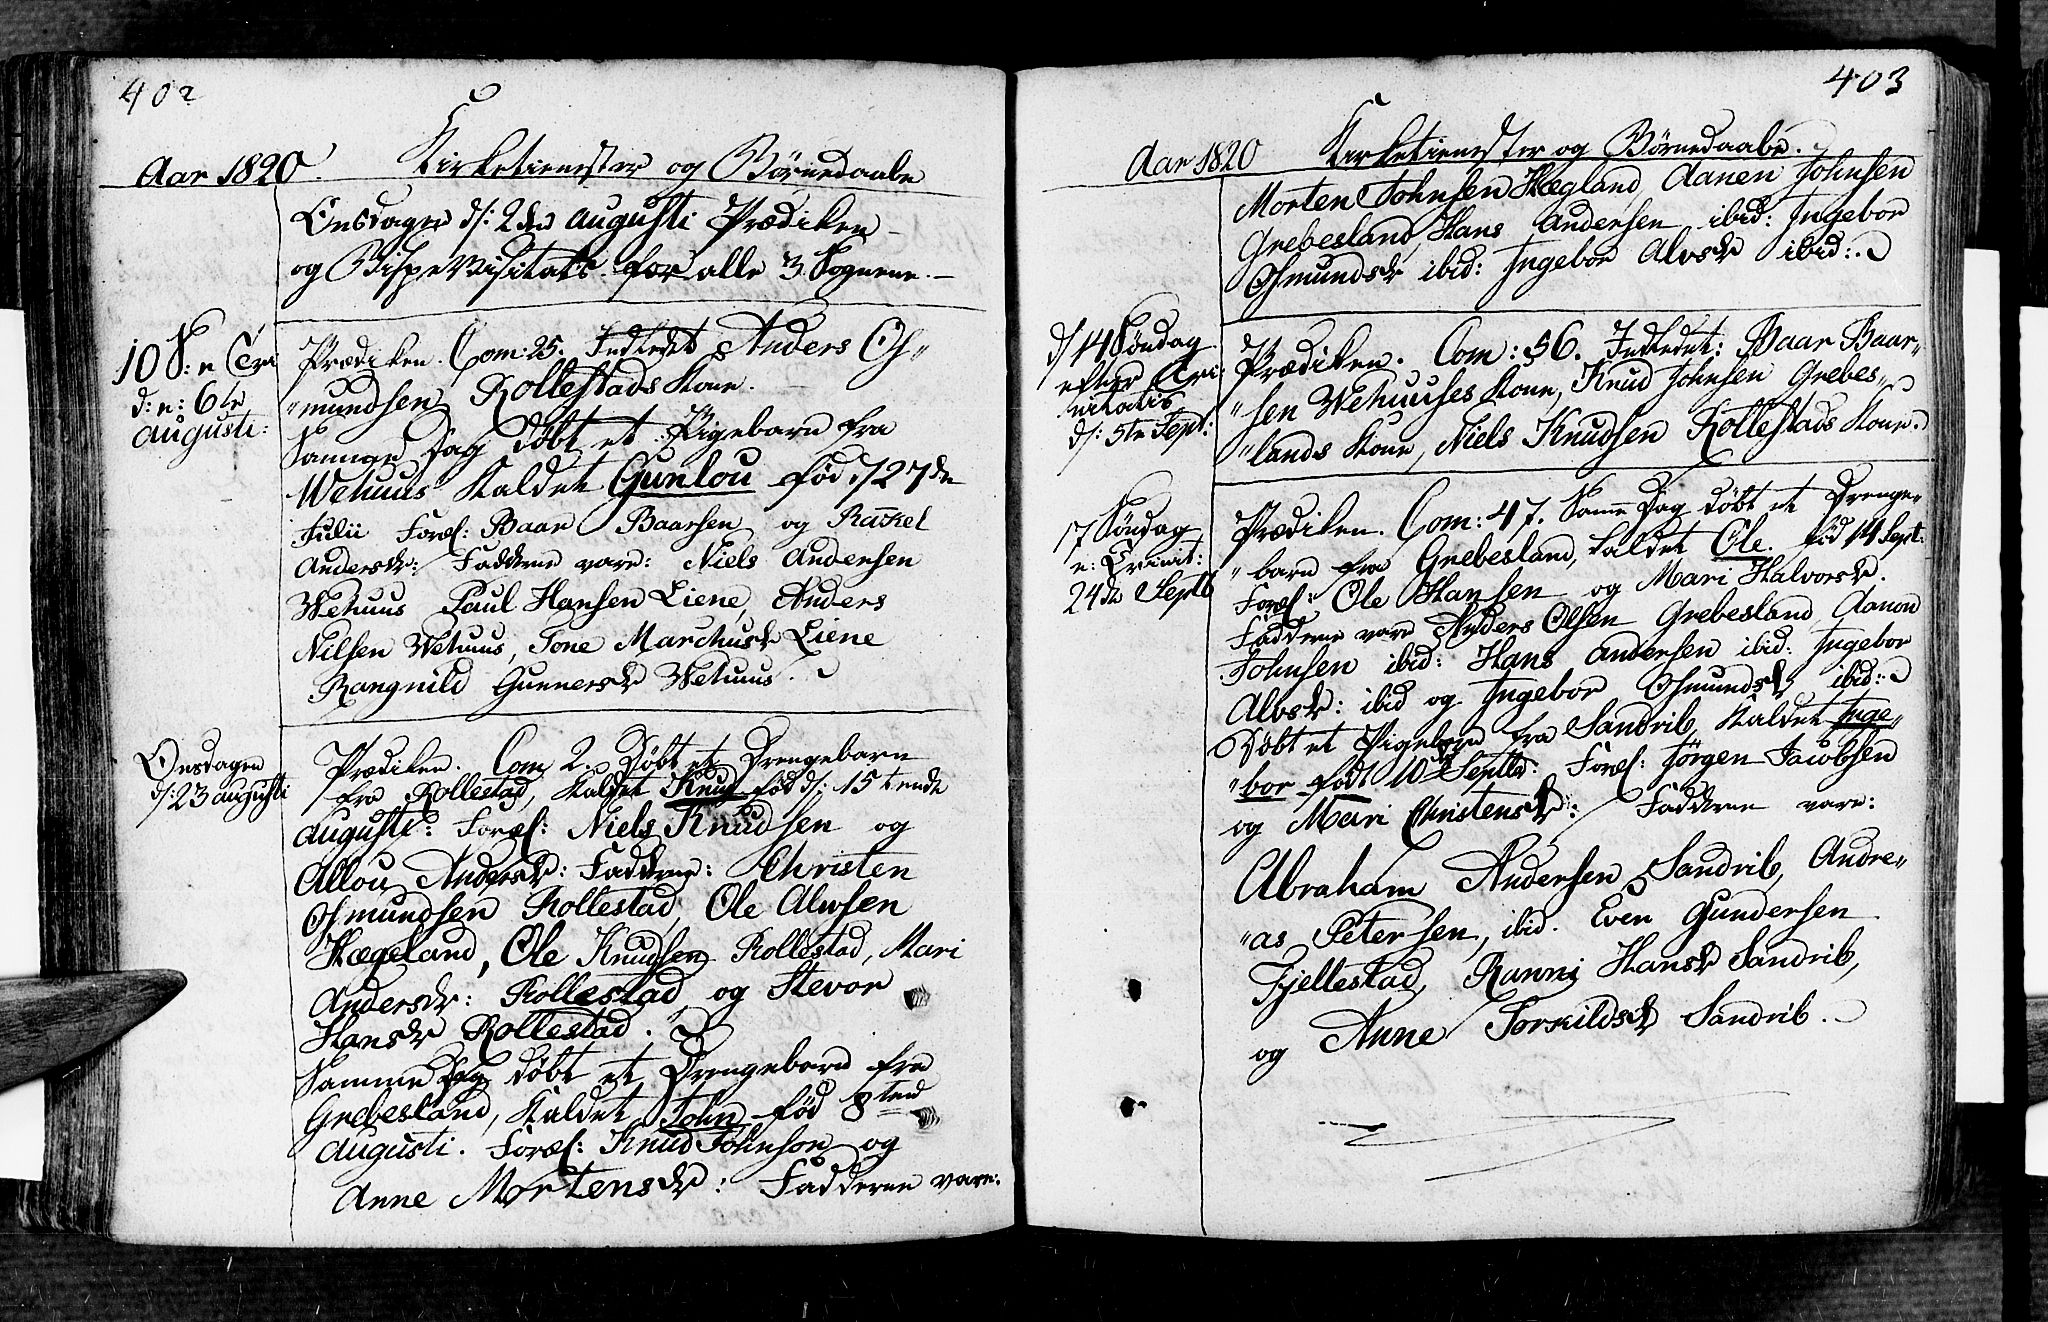 402
Aar 1820. Kirketienester og Børnedaabe
Onsdagen d: 2den Augusti Prædiken
og Bispevisitats for alle 3 Sognene.
10 S: n Tri
d: n: 6te
Augusti:
Prædiken. Com: 25. Indledt Anders Os„
„mundsen Rollestads Kone.
Samme Dag døbt et Pigebarn fra
Wehuus Kaldet Gunlou fød d 27de
Julii Foræl: Baar Baarsen og Rachel
Andersdr: Fadderne vare: Niels Andersen
Wehuus Paul Hansen Liene, Anders
Nilsen Wehuus, Tone Marchusdr Liene
Rangnild Gunnersdr Wehuus.
Onsdagen
d: 23 Augusti
Prædiken. Com 2. Døbt et Drengebarn
fra Rollestad, Kaldet Knud fød d: 15tende
Augusti: Foræl: Niels Knudsen og
Allou Andersdr: Fadderne: Christen
Osmundsen Rollestad, Ole Alwsen
Hægeland, Ole Knudsen Rollestad, Mari
Andersdr: Rollestad og Stevor
Hansdr Rollestad.
Samme Dag døbt et Drengebarn fra
Grebesland, Kaldet John fød 8tend
Augusti. Foræl: Knud Johnson og
Anne Mortensdr: Fadderne vare:
403
Aar 1820 Kirketienester og Børnedaabe.
Morten Johnsen Hægland, Aanen Johnsen
Grebesland, Hans Andersen ibid: Ingebor
Osmundsdr ibid: Ingebor Alvsdr ibid:
d/ 14 Søndag
efter Tri„
nitatis
d: 5te Sept:
Prædiken. Com: 56. Indledet: Baar Baar„
„sen Wehuuses Kone, Knud Johnsen Grebes„
„lands Kone, Niels Knudsen Rollestads Kone.
17 Søndag
n: Trinit:
24de Septb
Prædiken. Com: 47. Samme Dag døbt et Drenge„
„barn fra Grebesland, kaldet Ole. fød 14 Sept:
Foræl: Ole Hansen og Mari Halvorsdr.
Fadderne vare Anders Olsen Grebesland, Aanon
Johnsen ibid: Hans Andersen ibid: Ingebor
Alvsdr: ibid og Ingebor Osmundsdr ibid:
Døbt et Pigebarn fra Sandrib, Kaldet Inge„
„bor født 10 Septbr: Foræl: Jørgen Jacobsen
og Mari Christensdr: Fadderne vare:
Abraham Andersen Sandrib, Andre„
„as Petersen, ibid. Even Gundersen
Fjellestad, Ranni Hansdr Sandrib,
og Anne Torkildsdr Sandrib.